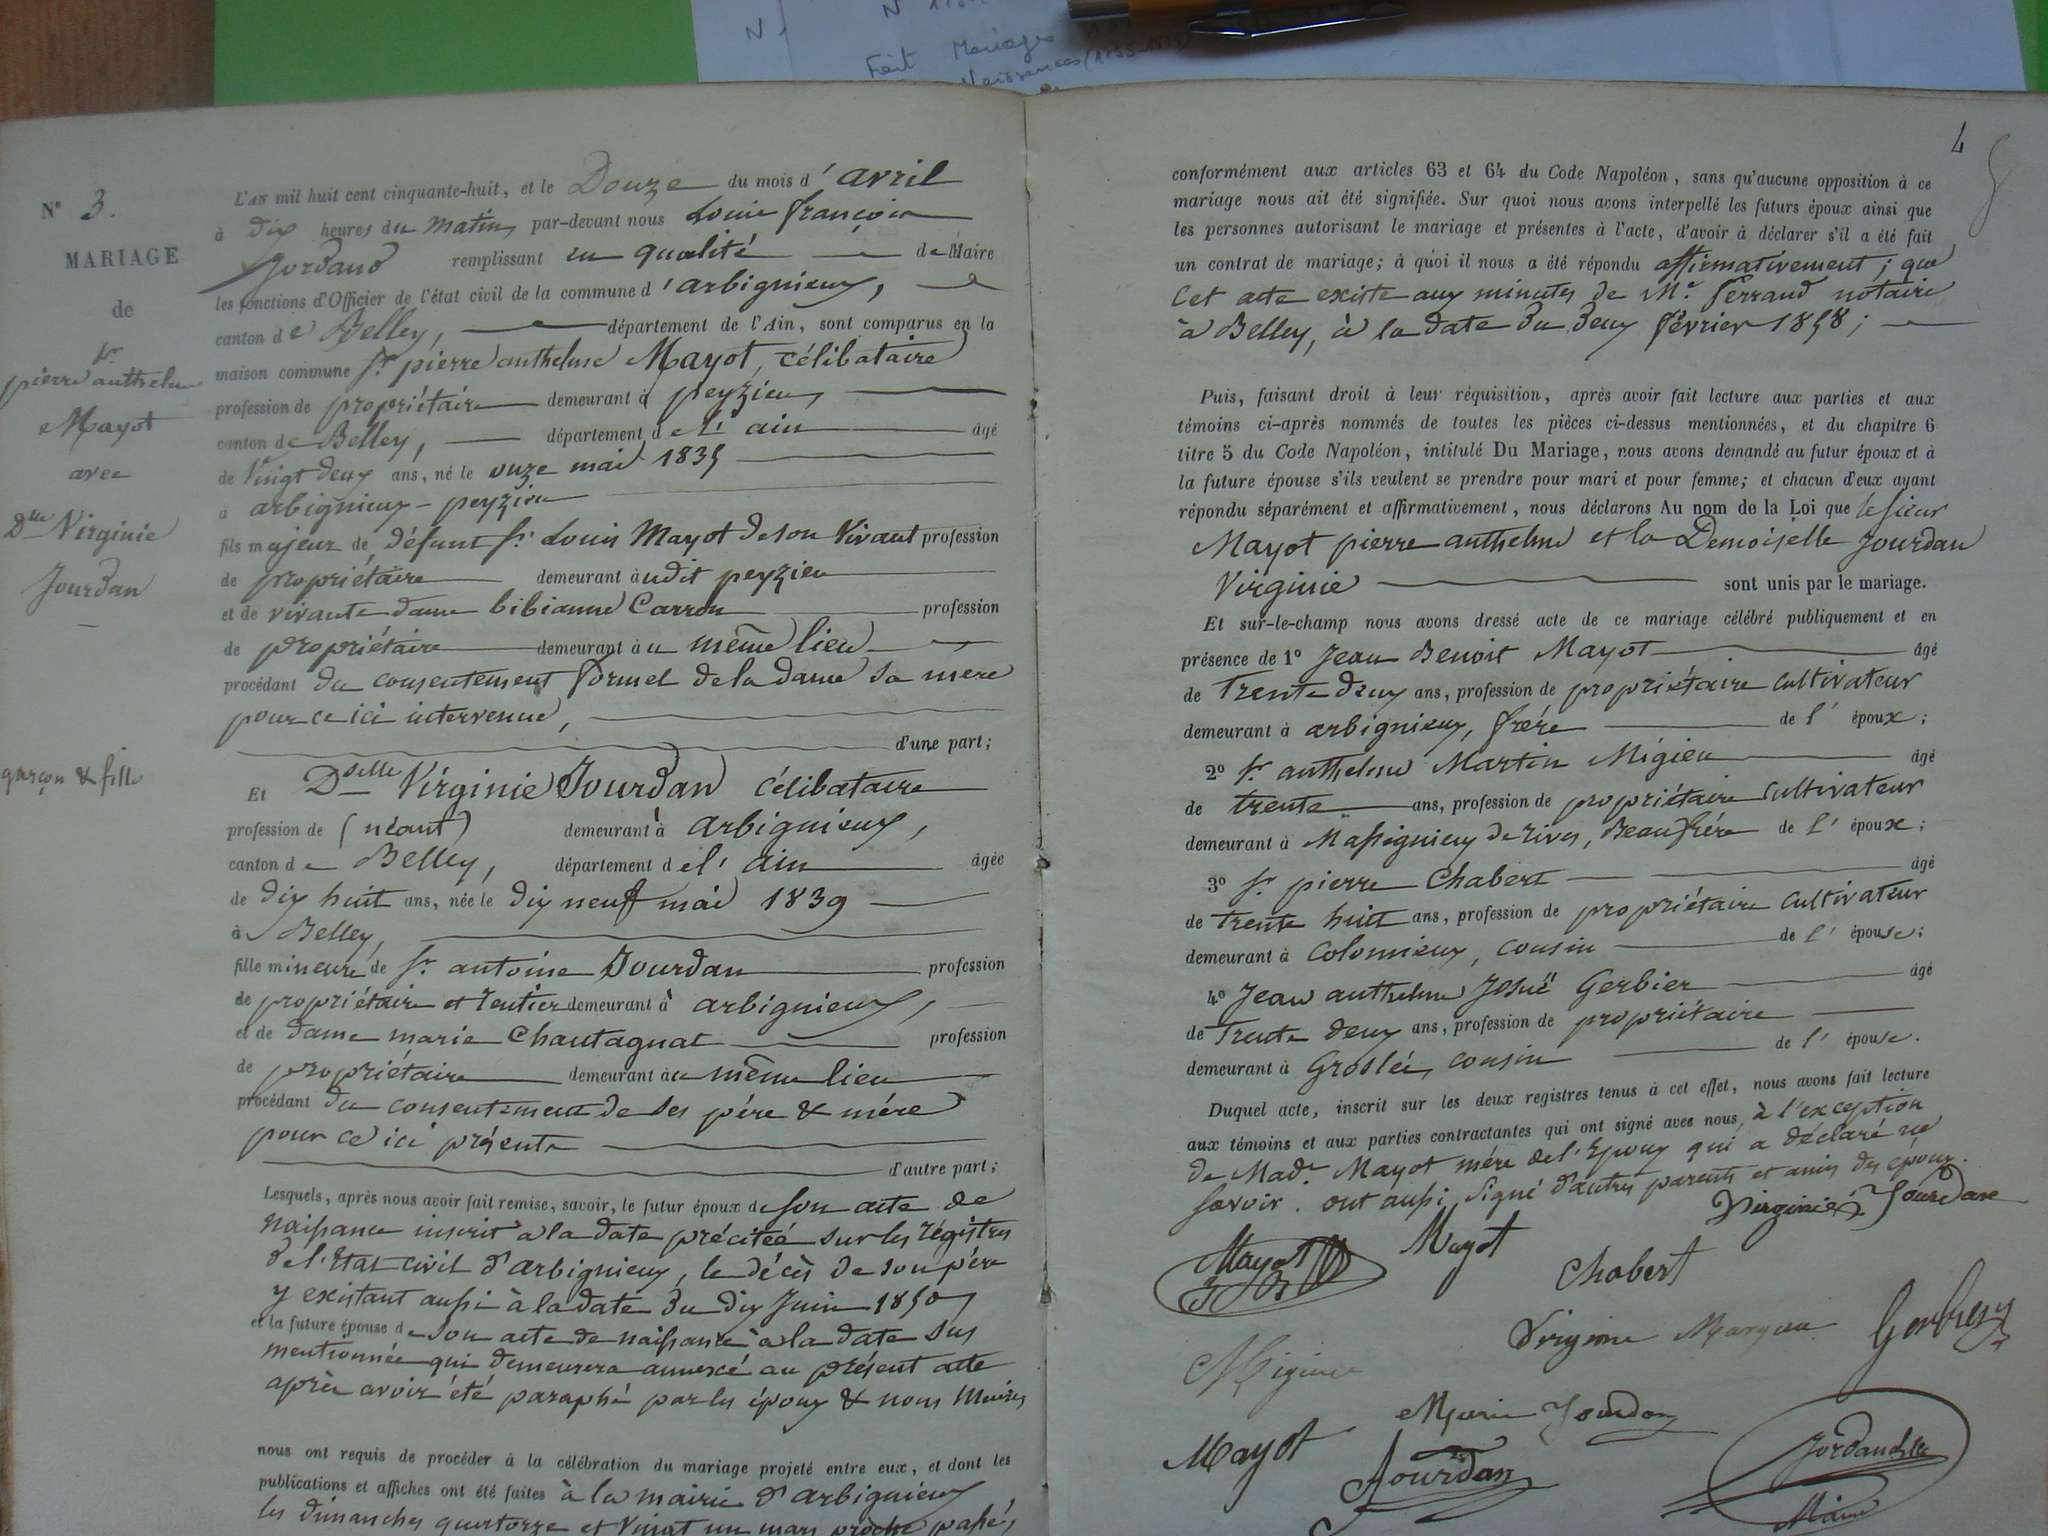 N
Fait Mariages
Naissances
4
N° 3.
MARIAGE
de
Sr
pierre anthelme
Mayot
avec
Dlle Virginie
Jourdan
garçon & fille
L'AN mil huit cent cinquante-huit, et le Douze du mois d'avril
à dix heures du matin, par-devant nous Louis françois
Jordand remplissant en qualité de Maire
les fonctions d'Officier de l'état civil de la commune d'arbignieux,
canton de Belley, département de l'Ain, sont comparus en la
maison commune Sr pierre anthelme Mayot, célibataire
profession de propriétaire demeurant à peyzieu,
canton de Belley, département de l'ain âgé
de Vingt deux ans, né le onze mai 1835
à arbignieux - peyzieu
fils majeur de défunt Sr Louis Mayot de son Vivant profession
de propriétaire demeurant à udit peyzieu
et de vivante dame bibianne Carron profession
de propriétaire demeurant à u même lieu
procédant du consentement formel de la dame sa mère
pour ce ici intervenue,
d'une part;
Et Dselle Virginie Jourdan célibataire
profession de (néant) demeurant à arbignieux,
canton de Belley, département de l'ain âgée
de dix huit ans, née le dix neuf mai 1839
à Belley,
fille mineure de Sr antoine Jourdan profession
de propriétaire et rentier demeurant à arbignieux,
et de dame marie Chautagnat profession
de propriétaire demeurant à u même lieu
procédant du consentement de ses père & mère
pour ce ici présents
d'autre part;
Lesquels, après nous avoir fait remise, savoir, le futur époux de son acte de
naissance inscrit a la date précitée sur les régistres
de l'Etat civil d'arbignieux, le décès de son père
y existant aussi à la date du dix Juin 1850
et la future épouse de son acte de naissance à la date sus
mentionnée qui demeurera annexé au présent acte
après avoir été paraphé par les époux & nous Maire,
nous ont requis de procéder à la célébration du mariage projeté entre eux, et dont les
publications et affiches ont été faites à la mairie d'arbignieux
les dimanches quatorze et vingt un mars proche passés,
conformément aux articles 63 et 64 du Code Napoléon, sans qu'aucune opposition à ce
mariage nous ait été signifiée. Sur quoi nous avons interpellé les futurs époux ainsi que
les personnes autorisant le mariage et présentes à l'acte, d'avoir à déclarer s'il a été fait
un contrat de mariage; à quoi il nous a été répondu affirmativement; que
Cet acte existe aux minutes de Me Perraud notaire
à Belley, à la date du deux février 1858;
Puis, faisant droit à leur réquisition, après avoir fait lecture aux parties et aux
témoins ci-après nommés de toutes les pièces ci-dessus mentionnées, et du chapitre 6
titre 5 du Code Napoléon, intitulé Du Mariage, nous avons demandé au futur époux et à
la future épouse s'ils veulent se prendre pour mari et pour femme; et chacun d'eux ayant
répondu séparément et affirmativement, nous déclarons Au nom de la Loi que le sieur
Mayot pierre anthelme et la Demoiselle Jourdan
Virginie sont unis par le mariage.
Et sur-le-champ nous avons dressé acte de ce mariage célébré publiquement et en
présence de 1° Jean Benoit Mayot âgé
de Trente deux ans, profession de propriétaire cultivateur
demeurant à arbignieux, frère de l'époux;
2° Sr anthelme Martin Migieu âgé
de trente ans, profession de propriétaire cultivateur
demeurant à Massignieu de rives, Beaufrère de l'époux;
3° Sr pierre Chabert âgé
de trente huit ans, profession de propriétaire cultivateur
demeurant à Colomieux, cousin de l'épouse;
4° Jean anthelme Josué Gerbier âgé
de Trente deux ans, profession de propriétaire
demeurant à Groslée, cousin de l'épouse.
Duquel acte, inscrit sur les deux registres tenus à cet effet, nous avons fait lecture
aux témoins et aux parties contractantes qui ont signé avec nous, à l'exception
de Made Mayot mère de l'Epoux qui a déclaré ne
savoir. ont aussi signé d'autres parents et amis des époux.
Virginie Jourdan
Mayot Mayot
Chabert
Migieu
Virginie
Marie Jourdan
Mayot
Jourdan
Jordand
Maire